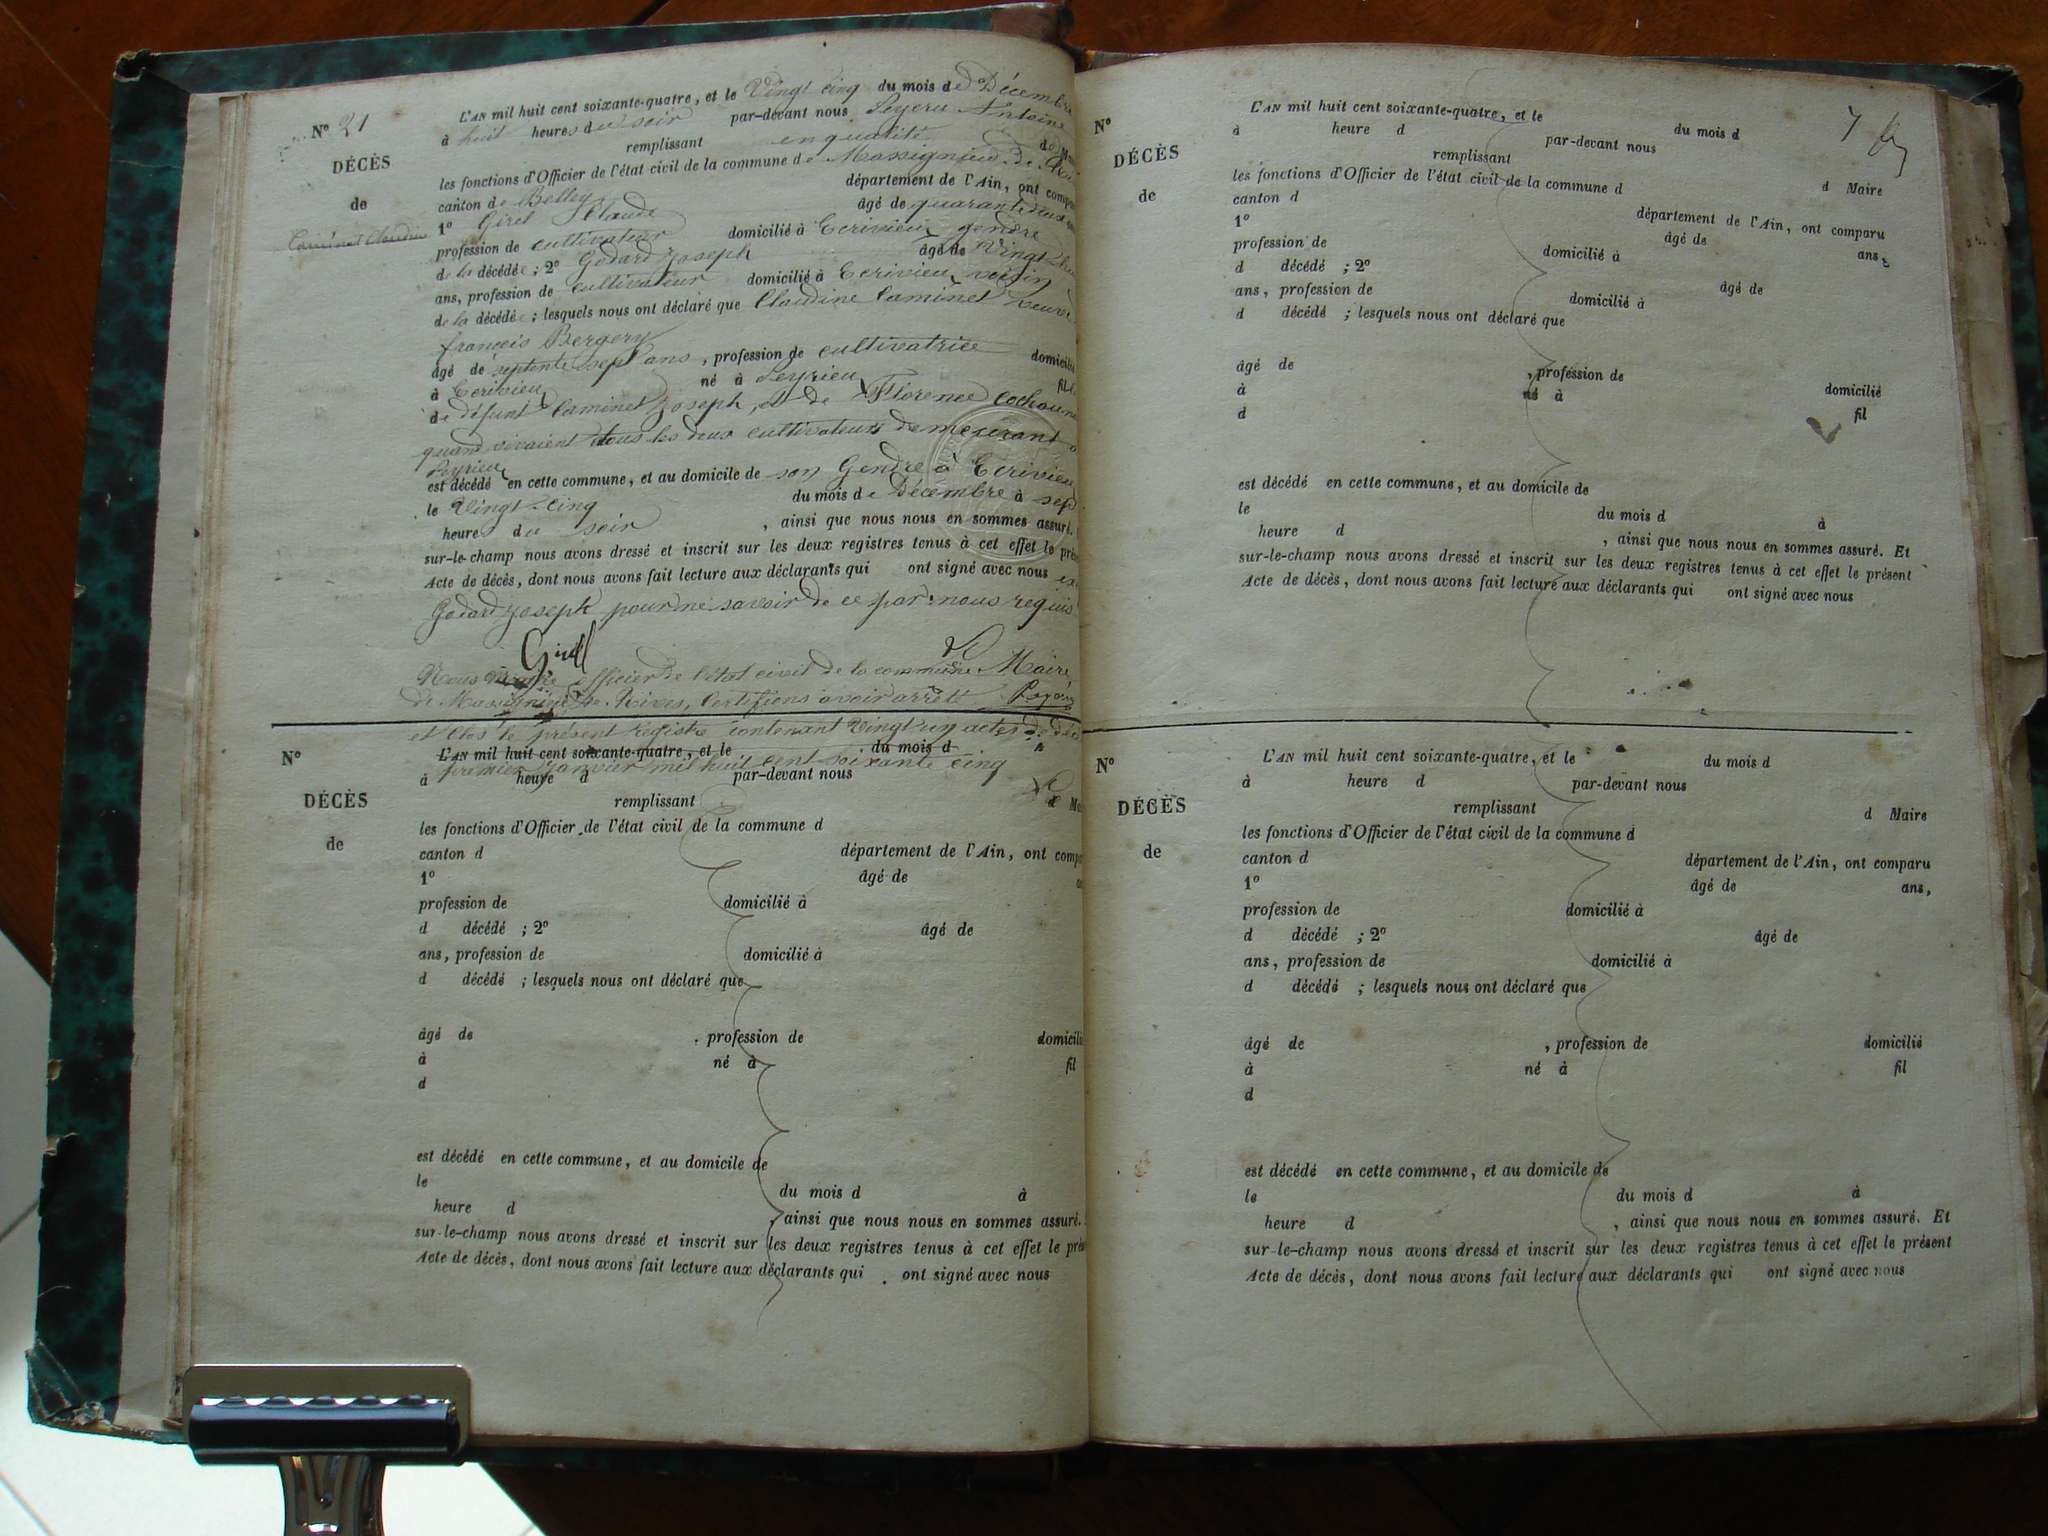 N° 21
DÉCÈS
de
Caminet Claudine
L'AN mil huit cent soixante-quatre, et le Vingt cinq du mois de Décembre
à huit heures du soir par-devant nous Peyeru Antoine
remplissant en qualité de
les fonctions d'Officier de l'état civil de la commune de Massignieu de
canton de Belley département de l'Ain, ont comp
1° Girel Claude âgé de quarante deux
profession de cultivateur domicilié à Ecrivieu gendre
de la décédée ; 2° Godard Joseph âgé de Vingt
ans, profession de cultivateur domicilié à Ecrivieu voisin
de la décédée ; lesquels nous ont déclaré que Claudine Caminet
françois Bergery
âgé de septente sept ans, profession de cultivatrice domicilié
à Ecrivieu né à Peyrieu fil
de défunt Caminet Joseph, et de Florence
quand vivaient tous les deux cultivateurs demeurant à
Peyrieu
est décédé en cette commune, et au domicile de son Gendre à Ecrivieu
le Vingt-cinq du mois de Décembre à sep
heures du soir, ainsi que nous nous en sommes assuré.
sur-le-champ nous avons dressé et inscrit sur les deux registres tenus à cet effet le prés
Acte de décès, dont nous avons fait lecture aux déclarants qui ont signé avec nous
Godard Joseph pour ne savoir de ce par nous requis
Girel Le
Nous officier de l'état civil de la commune Maire
de Massignieu de Rives, Certifions avoir arrêté
et clos le présent registre contenant Vingt un actes de
N° L'AN mil huit cent soixante-quatre, et le du mois d
premier Janvier mil huit cent soixante cinq
à heure d par-devant nous
DÉCÈS
remplissant d
les fonctions d'Officier de l'état civil de la commune d
de
canton d département de l'Ain, ont comp
1° âgé de
profession de domicilié à
d décédé ; 2° âgé de
ans, profession de domicilié à
d décédé ; lesquels nous ont déclaré que
âgé de , profession de domicili
à né à fil
d
est décédé en cette commune, et au domicile de
le du mois d à
heure d , ainsi que nous nous en sommes assuré.
sur-le-champ nous avons dressé et inscrit sur les deux registres tenus à cet effet le prés
Acte de décès, dont nous avons fait lecture aux déclarants qui ont signé avec nous
7
N°
DÉCÈS
de
L'AN mil huit cent soixante-quatre, et le du mois d
à heure d par-devant nous
remplissant d Maire
les fonctions d'Officier de l'état civil de la commune d
canton d département de l'Ain, ont comparu
1° âgé de ans,
profession de domicilié à
d décédé ; 2° âgé de
ans, profession de domicilié à
d décédé ; lesquels nous ont déclaré que
âgé de , profession de domicilié
à né à fil
d
est décédé en cette commune, et au domicile de
le du mois d à
heure d , ainsi que nous nous en sommes assuré. Et
sur-le-champ nous avons dressé et inscrit sur les deux registres tenus à cet effet le présent
Acte de décès, dont nous avons fait lecture aux déclarants qui ont signé avec nous
N°
DÉCÈS
de
L'AN mil huit cent soixante-quatre, et le du mois d
à heure d par-devant nous
remplissant d Maire
les fonctions d'Officier de l'état civil de la commune d
canton d département de l'Ain, ont comparu
1° âgé de ans,
profession de domicilié à
d décédé ; 2° âgé de
ans, profession de domicilié à
d décédé ; lesquels nous ont déclaré que
âgé de , profession de domicilié
à né à fil
d
est décédé en cette commune, et au domicile de
le du mois d à
heure d , ainsi que nous nous en sommes assuré. Et
sur-le-champ nous avons dressé et inscrit sur les deux registres tenus à cet effet le présent
Acte de décès, dont nous avons fait lecture aux déclarants qui ont signé avec nous